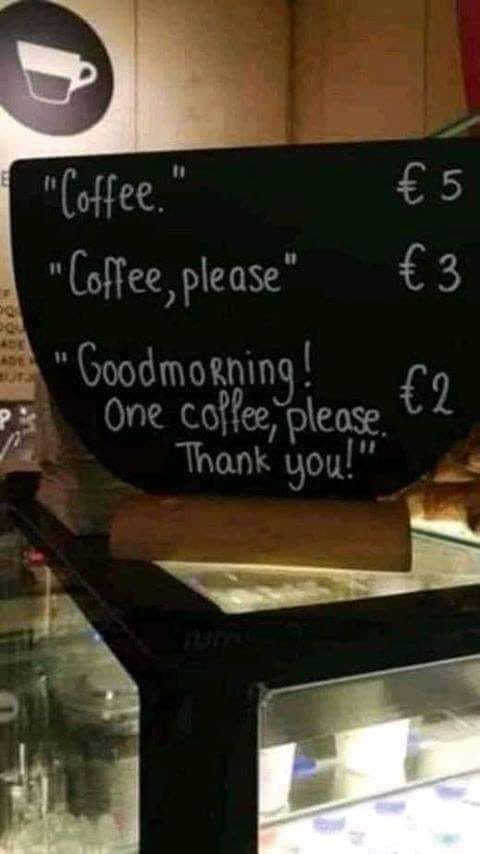 "Coffee." € 5
"Coffee, please" € 3
"Goodmorning!
One coffee, please. €2
Thank you!"